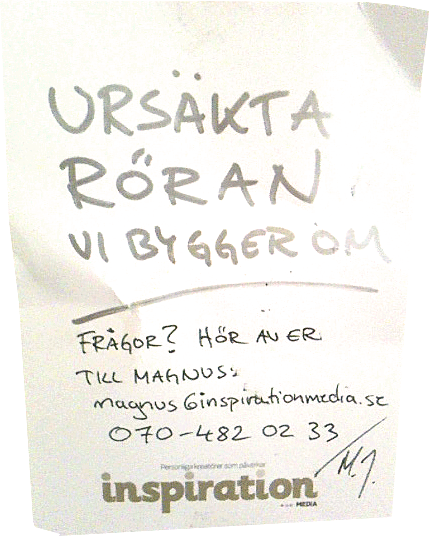 URSÄKTA
RÖRAN
VI BYGGER OM
FRÅGOR? HÖR AV ER
TILL MAGNUS:
magnus@inspirationmedia.se
070-482 02 33
/M.J.
Personliga kreatörer som påverkar
inspiration
MEDIA